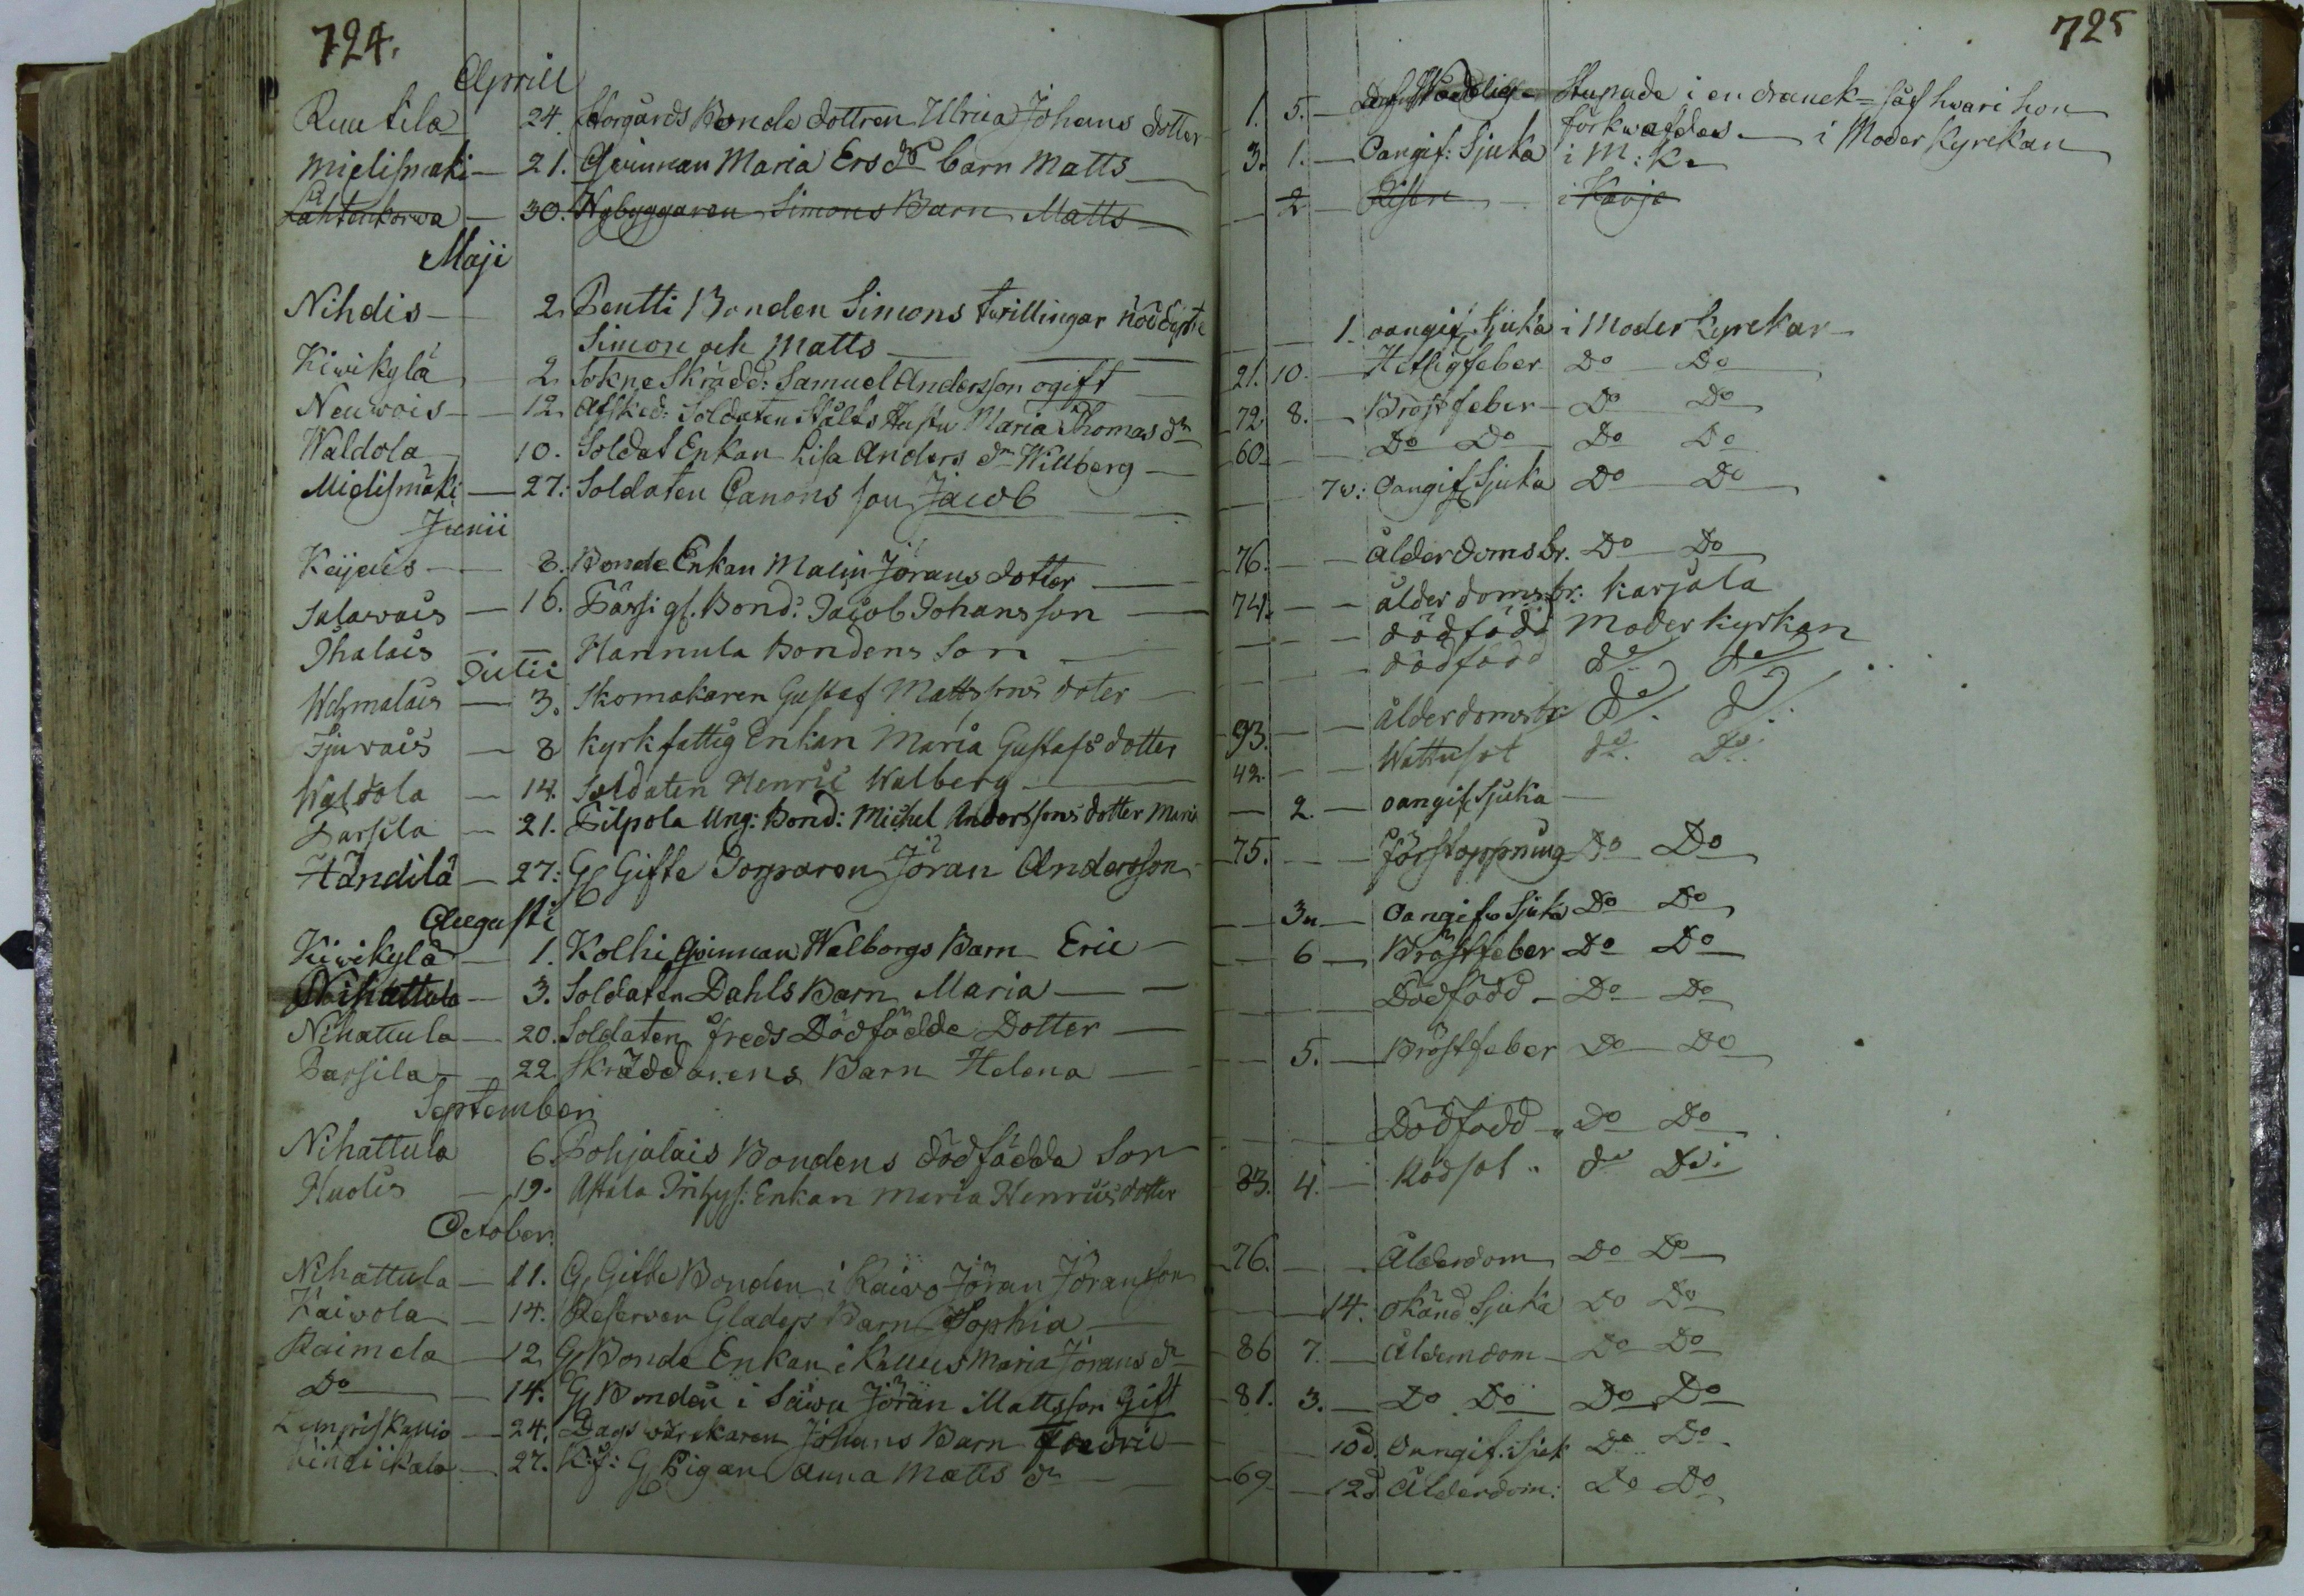 724.
Aprill
Ruutila 24. Storgårds Bonde dottren Ulrica Johans dotter
Mielismäki — 21. Qvinnan Maria Ers dr barn Matts
Lahtenkorwa — 30. Nybyggaren Simons Barn Matts
Maji
Nihdis — 2. Pentti Bonden Simons twillingar nöddöpte
Simon och Matts
Kiwikylä 2. Sokne Skrädd: Samuel Andersson ogift
Neuwois — 12. Afsked: Soldaten Stålts Hustru Maria Thomas dr
Waldola 10. Soldat Enkan Lisa Anders dr Willberg
Mielismäki — 27. Soldaten Canons son Jacob
Junii
Keijais — 8. Bonde Enkan Malin Jörans dotter
Salavais — 16. Pässi gl. Bond: Jacob Johansson
Ihalais Hannula Bondens Son
Julii
Wehmalais — 3. Skomakaren Gustaf Mattssons doter
Sjuvais — 8 Kyrkfattig Enkan Maria Gustafs dotter
Waldola — 14. Soldaten Henric Walberg
Parsila — 21. Filpola Ung: Bond: Michel Anderssons dotter Maria
Händilä — 27: Gl Gifte Torparen Jöran Andersson
Augusti
Kiwikylä — 1. Kolhi Qvinnan Walborgs Barn Eric
Nihattula — 3. Soldaten Dahls Barn Maria
Nihattula — 20. Soldaten Freds Dödfödde Dotter
Parsila — 22. Skräddarens Barn Helena
September
Nihattula 6. Pohjalais Bondens dödfödda Son
Huolis — 19. Astala Inhys: Enkan Maria Henrics dotter
October
Nihattula — 11. Gl Gifte Bonden i Kaivo Jöran Jöransson
Kaivola — 14. Reserven Glader Barn Sophia
Raimela — 12 Gl Bonde Enkan i Kallus Maria Jörans dr
Do — 14. Gl Bonden i Säwu Jöran Mattsson Gift
24. Dagswärckaren Johans Barn Fredric
27. Gl Pigan Anna Matts dr
725
1. 5. — Stupade i en dranck-så hvari hon
förkwafdes — i Moder Kyrckan
3. 1. — Oangif: Sjuka i M: K.
— 2 — Risen — i Karja
1. oangif Sjuka i Moder Kyrckan
21. 10. — Hetsigfeber Do Do
72 8. — Bröstfeber Do Do
60 — Do Do Do Do
7 v: Oangif Sjuka Do Do
76. — — Ålderdoms br. Do Do
74. — — ålderdomsbr: Karjala
— — — dödfödd Moderkyrkan
— — — dödfödd do do
93. — — ålderdomsbr do do
42. — — Wattusot do. Do.
— 2. — oangif Sjuka —
75. — — Förstoppning Do Do
— 3 — Oangifv Sjuka Do Do
— 6 — Bröstfeber Do Do
Dödfödd — Do Do
— 5. — Bröstfeber Do Do
Dödfödd Do Do
83. 4. — Rödsot do Do:
76. — — Ålderdom Do Do
14. Okänd Sjuka Do Do
86 7. — Ålderdom — Do Do
81. 3. — Do Do Do Do
10 d. Oangif. Sjuk Do Do
69 — 12 d Ålderdom: Do Do